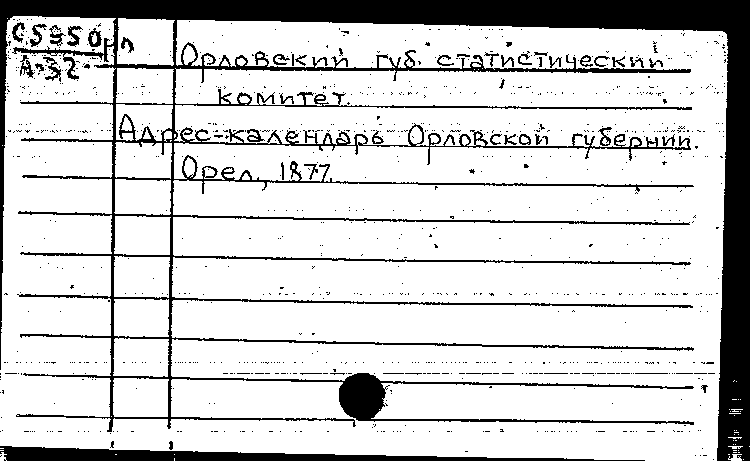 С5850рл
А-32
Орловский губ. статистический
комитет.
Адрес-календарь Орловской губернии.
Орел, 1877.